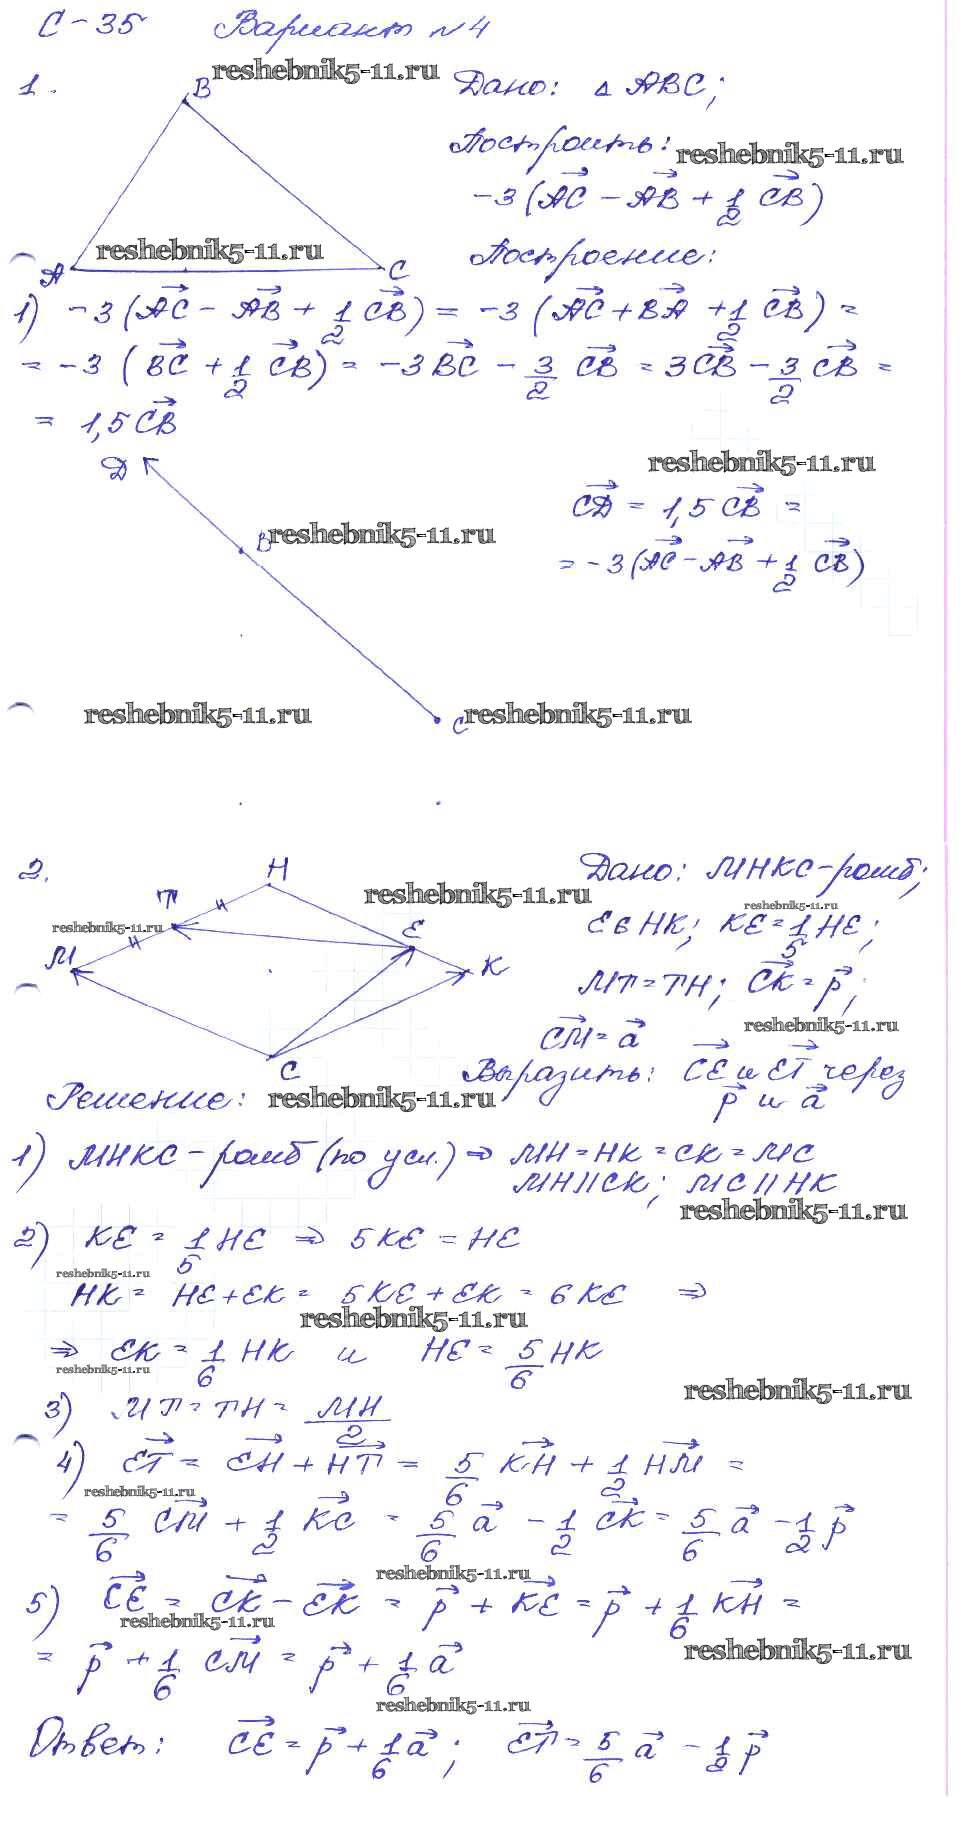 С-35 Вариант №4
reshebnik5-11.ru
1.
B
Дано: △ ABC;
Построить:
reshebnik5-11.ru
-3(AC⃗ - AB⃗ + 1/2 CB⃗)
reshebnik5-11.ru
Построение:
A C
1) -3(AC⃗ - AB⃗ + 1/2 CB⃗) = -3(AC⃗ + BA⃗ + 1/2 CB⃗) =
= -3(BC⃗ + 1/2 CB⃗) = -3BC⃗ - 3/2 CB⃗ = 3CB⃗ - 3/2 CB⃗ =
= 1,5CB⃗
D
reshebnik5-11.ru
CD⃗ = 1,5CB⃗ =
B reshebnik5-11.ru
= -3(AC⃗ - AB⃗ + 1/2 CB⃗)
reshebnik5-11.ru
C reshebnik5-11.ru
2.
H
Дано: МНКС-ромб;
T
reshebnik5-11.ru
reshebnik5-11.ru
reshebnik5-11.ru
E
E ∈ HK; KE = 1/5 HE;
M
K
MT = TH; CK⃗ = p⃗;
reshebnik5-11.ru
CM⃗ = a⃗
C
Выразить: CE⃗ и ET⃗ через
p⃗ и a⃗
Решение:
reshebnik5-11.ru
1) МНКС - ромб (по усл.) ⇒ MH = HK = CK = MC
MH || CK; MC || HK
reshebnik5-11.ru
2) KE = 1/5 HE ⇒ 5KE = HE
reshebnik5-11.ru
HK = HE + EK = 5KE + EK = 6KE ⇒
reshebnik5-11.ru
⇒ EK = 1/6 HK и HE = 5/6 HK
reshebnik5-11.ru
reshebnik5-11.ru
3) MT = TH = MH/2
4) ET⃗ = EH⃗ + HT⃗ = 5/6 KH⃗ + 1/2 HM⃗ =
reshebnik5-11.ru
= 5/6 CM⃗ + 1/2 KC⃗ = 5/6 a⃗ - 1/2 CK⃗ = 5/6 a⃗ - 1/2 p⃗
reshebnik5-11.ru
5) CE⃗ = CK⃗ - EK⃗ = p⃗ + KE⃗ = p⃗ + 1/6 KH⃗ =
reshebnik5-11.ru
reshebnik5-11.ru
= p⃗ + 1/6 CM⃗ = p⃗ + 1/6 a⃗
reshebnik5-11.ru
Ответ: CE⃗ = p⃗ + 1/6 a⃗; ET⃗ = 5/6 a⃗ - 1/2 p⃗